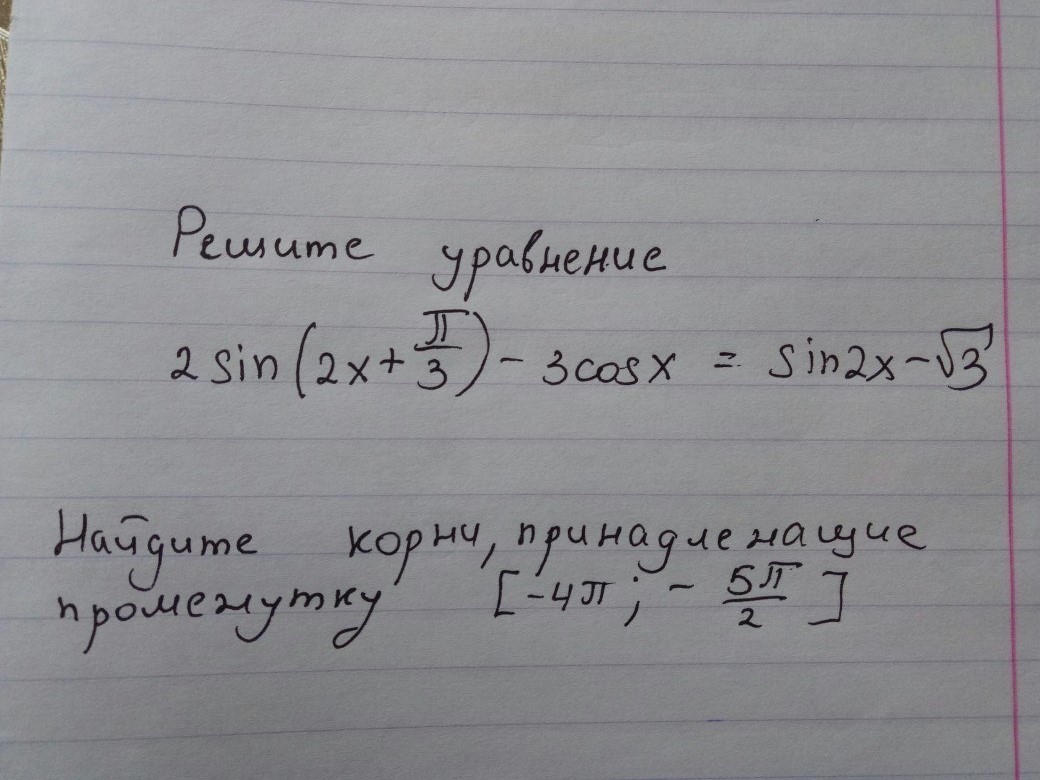 Решите уравнение
2 sin(2x + π/3) - 3cosx = sin2x - √3
Найдите корни, принадлежащие
промежутку [-4π; - 5π/2]